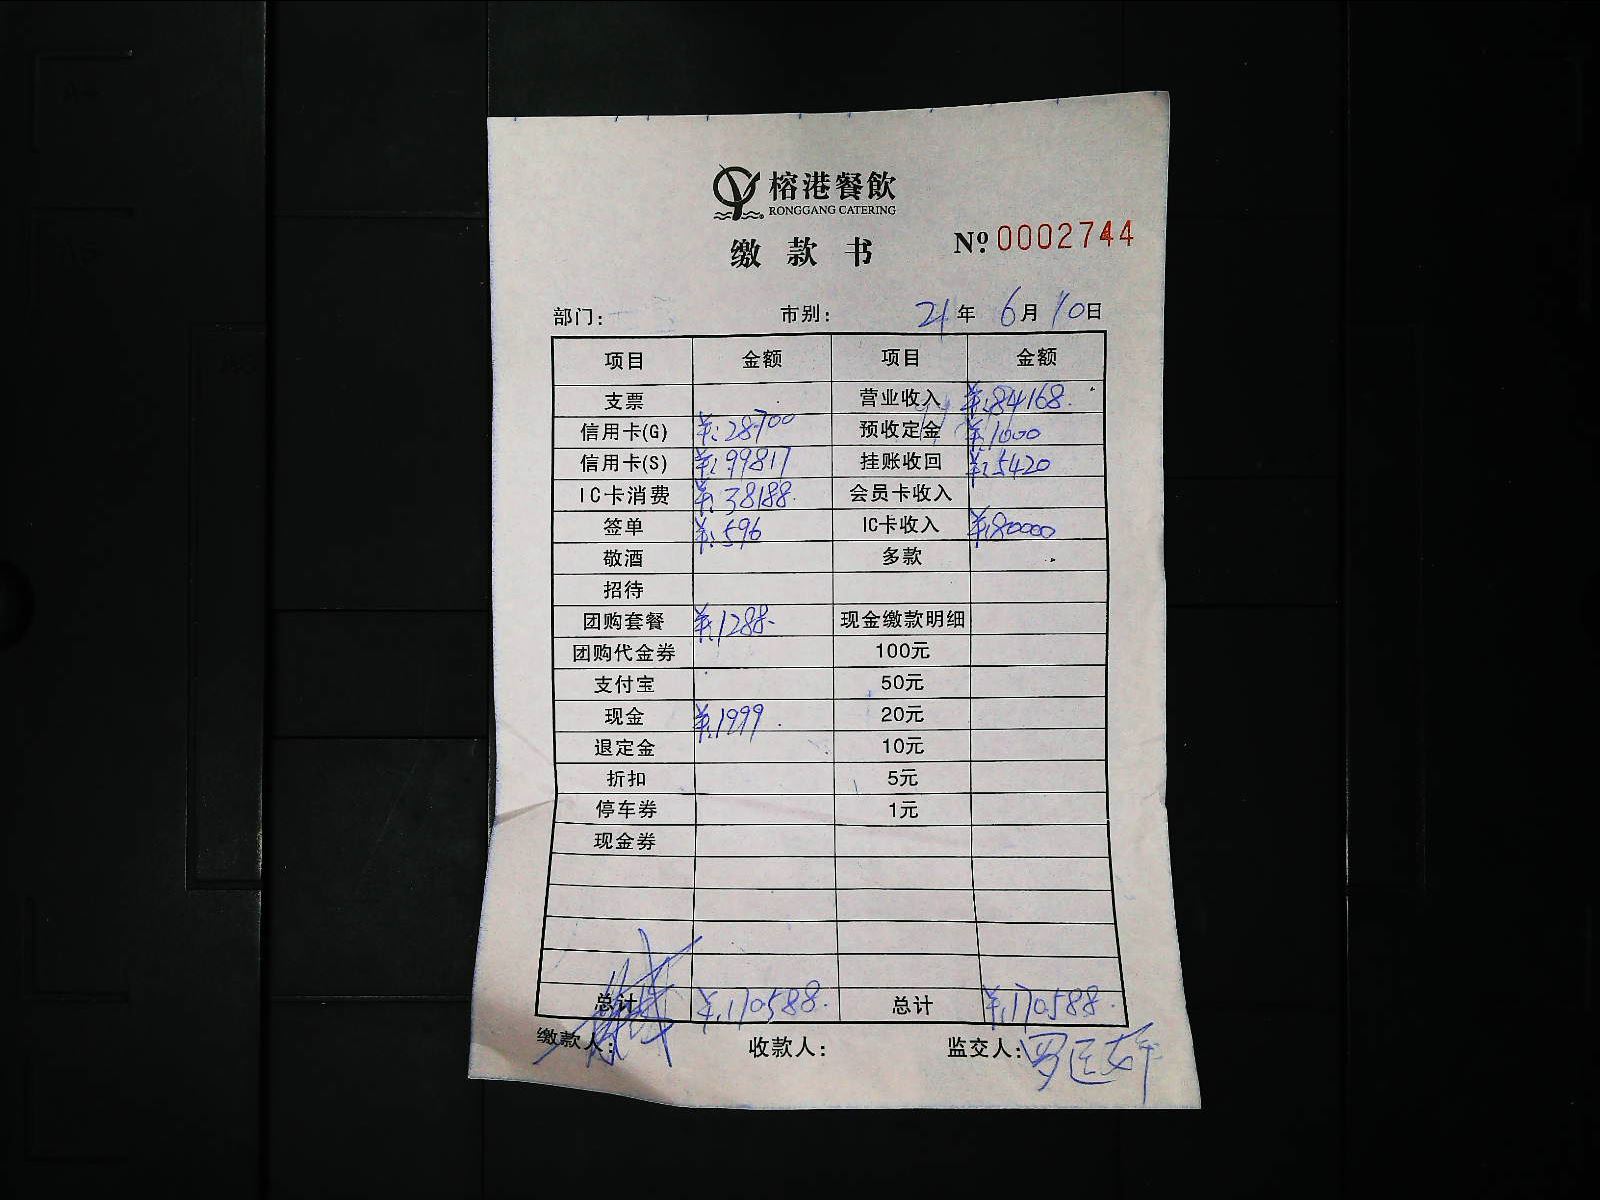 榕港餐飲
RONGGANG CATERING
缴款书
Nº 0002744
部门: 市别: 21年 6月 10日
项目 金额 项目 金额
支票 营业收入 ¥:84168.
信用卡(G) ¥:28700 预收定金 ¥:1000
信用卡(S) ¥:99817 挂账收回 ¥:5420
IC卡消费 ¥:38188. 会员卡收入
签单 ¥:596 IC卡收入 ¥:80000
敬酒 多款
招待
团购套餐 ¥:1288- 现金缴款明细
团购代金券 100元
支付宝 50元
现金 ¥:1999. 20元
退定金 10元
折扣 5元
停车券 1元
现金券
总计 ¥:170588. 总计 ¥:170588.
缴款人: 收款人: 监交人:罗